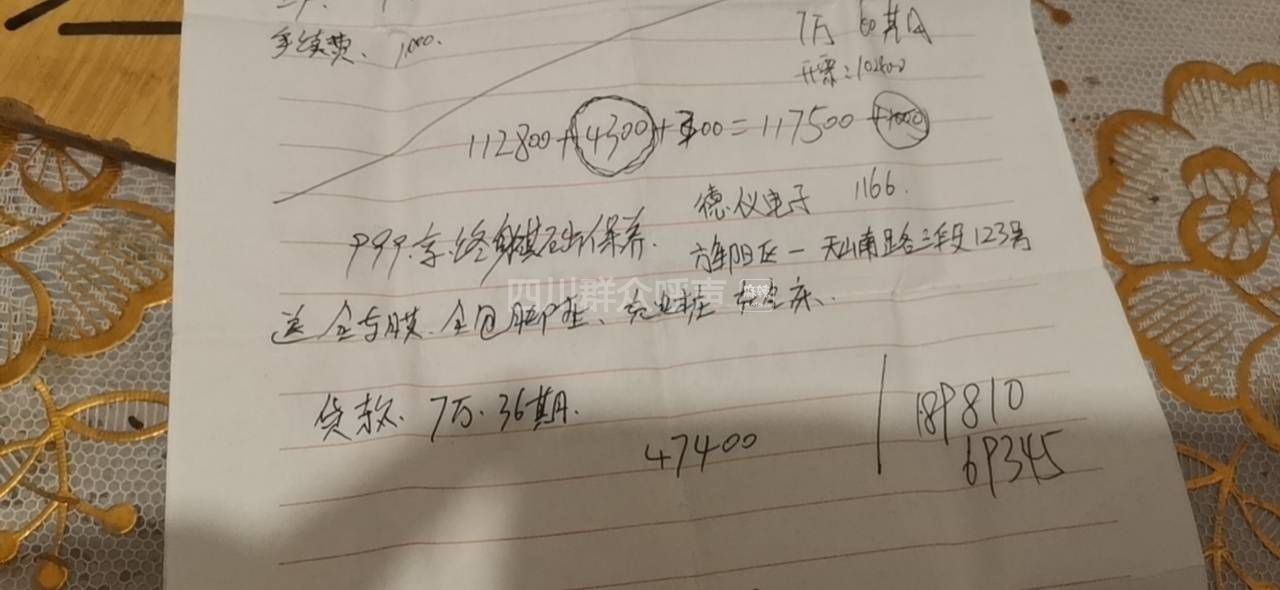 手续费、1000.
7万 60期
开票:102800
112800+4300+400=117500+1000
德仪电子 1166.
999.享.终身基础保养.
旌阳区一天山南路三段123号
送全车膜.全包脚垫、充电桩
贷款.7万.36期.
47400
189810
69345
四川群众呼声